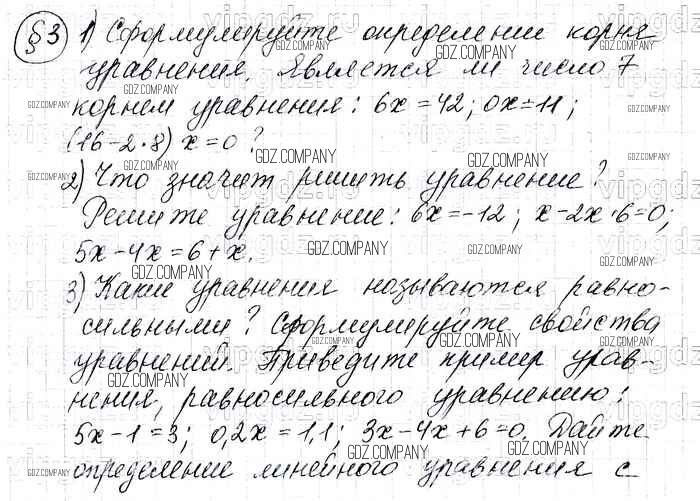 §3 1) Сформулируйте определение корня
уравнения. Является ли число 7
корнем уравнения: 6х = 42; 0х = 11;
(16 - 2 · 8) х = 0?
2) Что значит решить уравнение?
Решите уравнение: 6х = -12; х - 2х · 6 = 0;
5х - 4х = 6 + х.
3) Какие уравнения называются равно-
сильными? Сформулируйте свойства
уравнений. Приведите пример урав-
нения, равносильного уравнению:
5х - 1 = 3; 0,2х = 1,1; 3х - 4х + 6 = 0. Дайте
определение линейного уравнения с